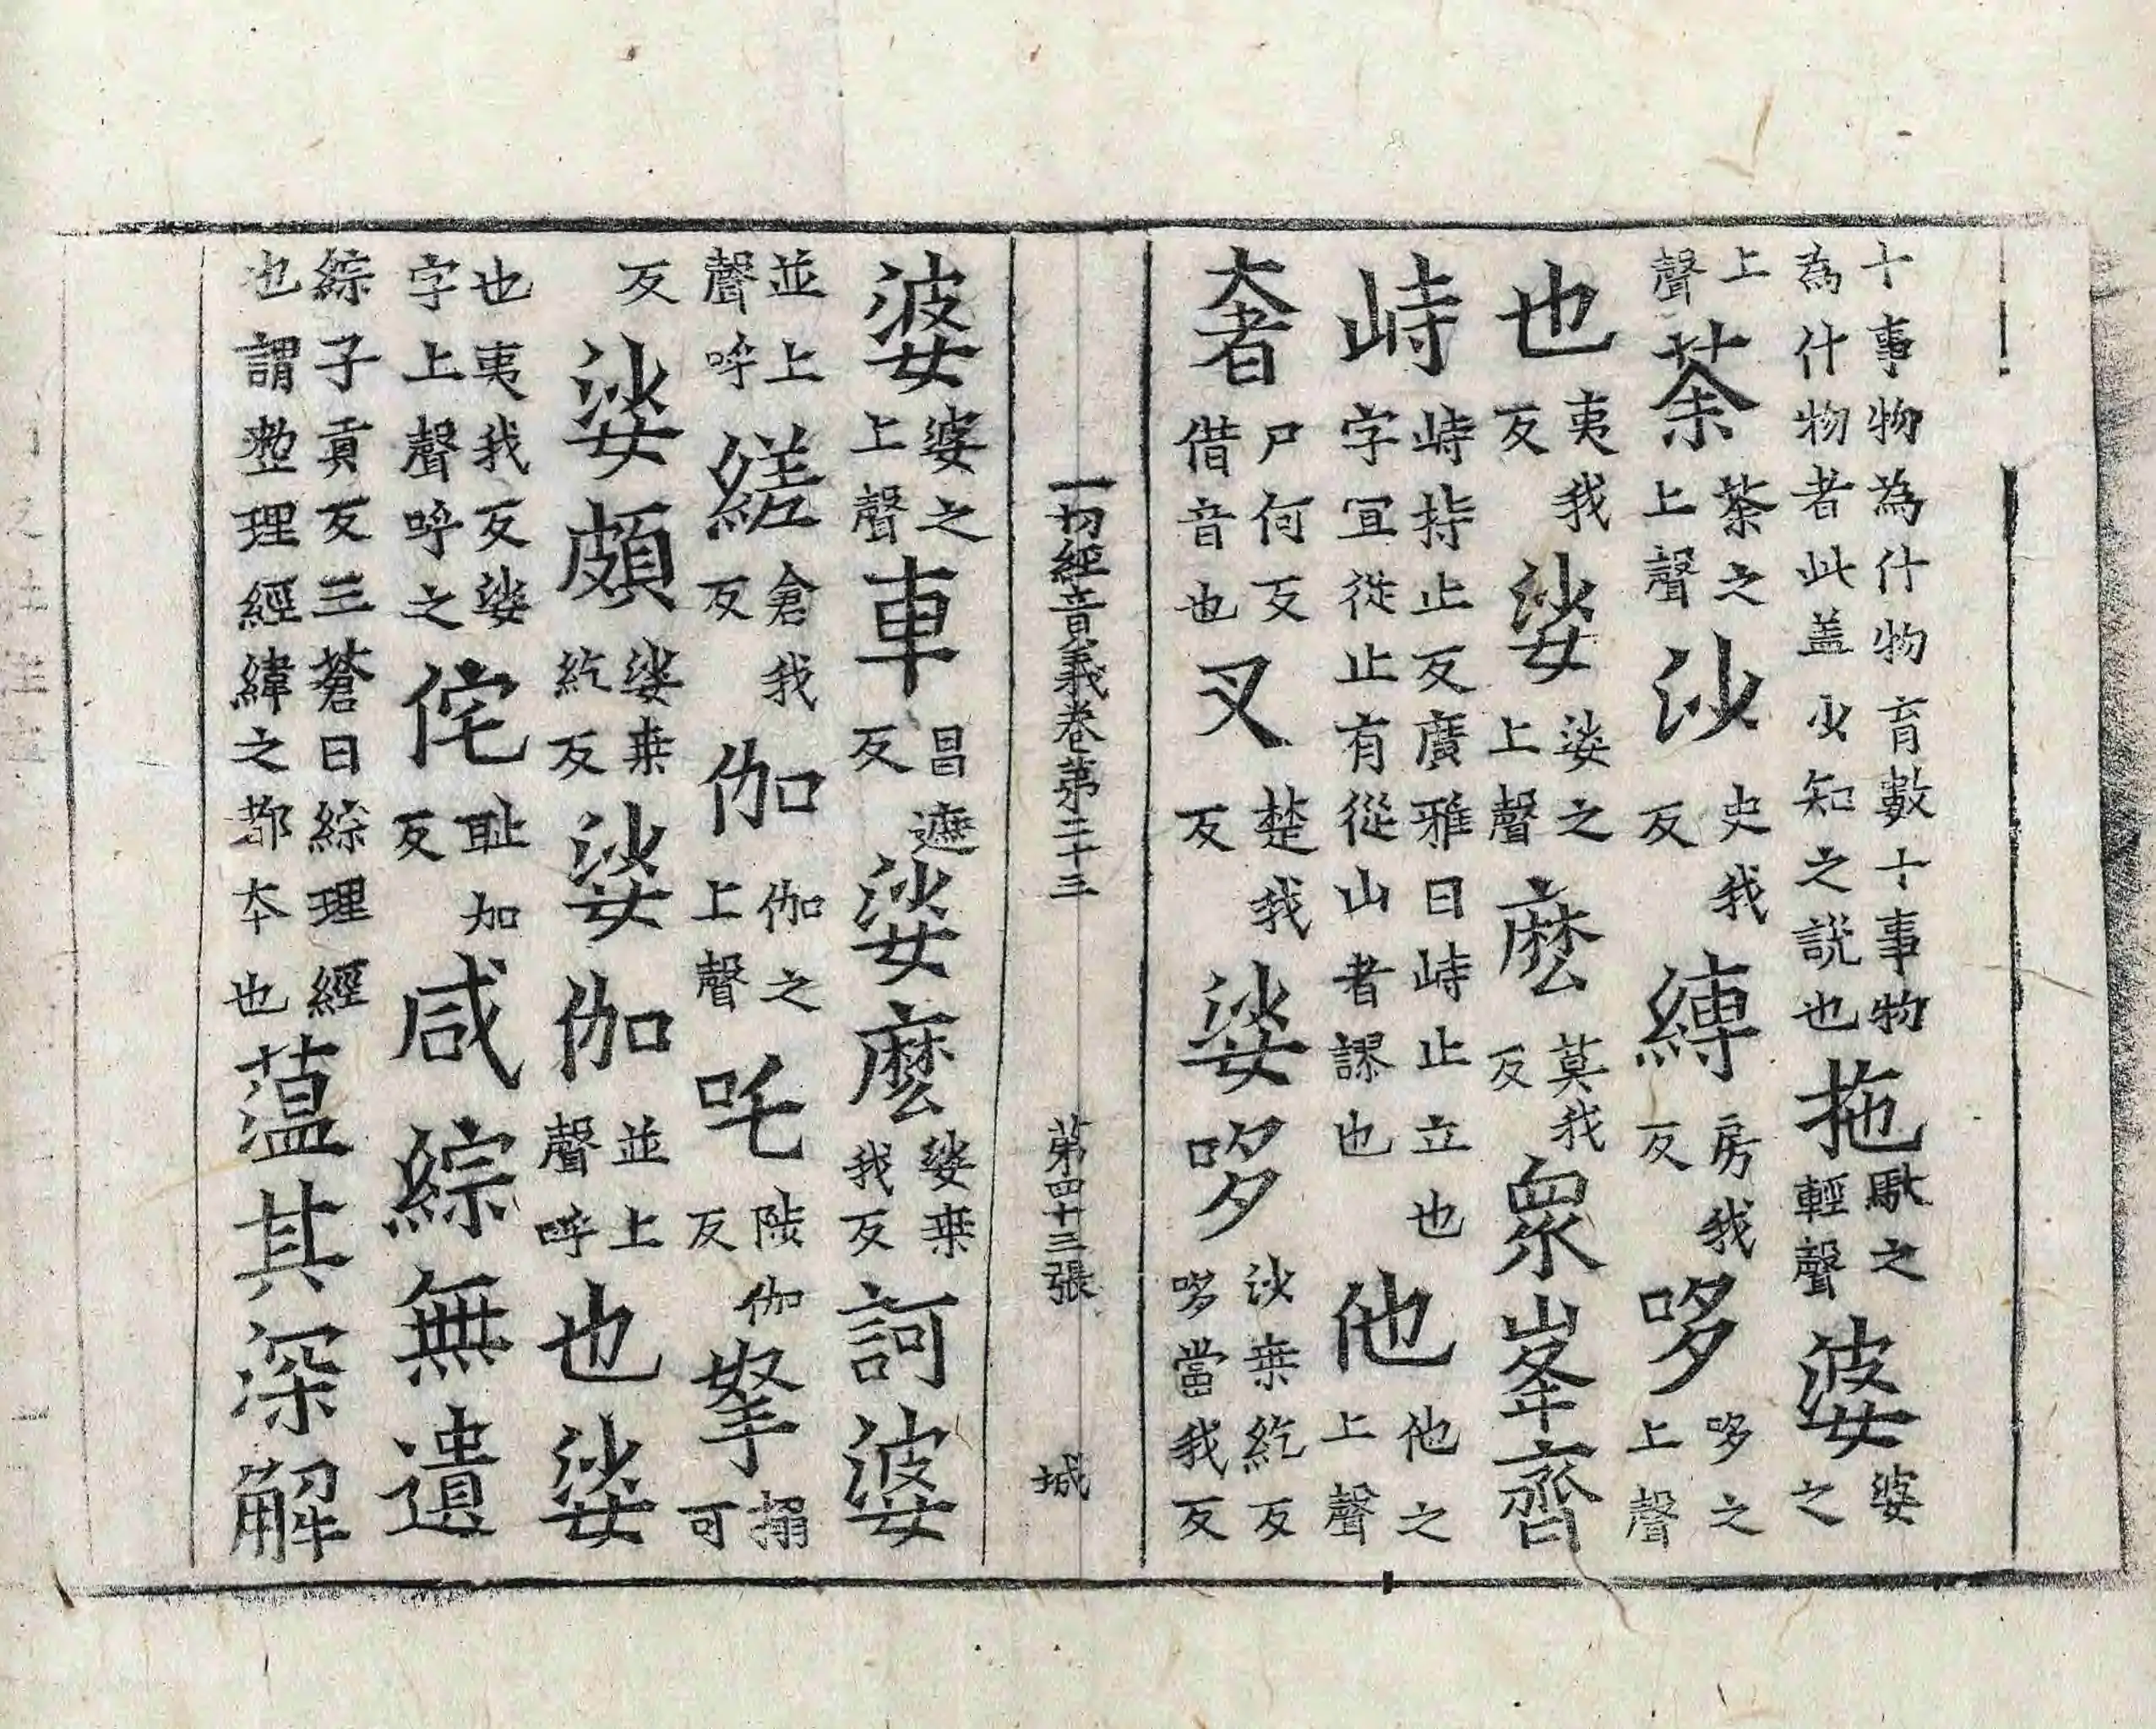 十事物為什物育數十事物為什物者此盖少知之說也拖馱之輕聲婆婆之
上聲荼荼之上聲沙史我反縛房我反哆哆之上聲
也夷我反娑娑之上聲麽莫我反眾峯齊
峙峙持止反廣雅曰峙止立也字宜從止有從山者謬也他他之上聲
奢尸何反借音也叉楚我反娑哆沙桒紇反哆當我反
一切經音義卷第二十三 第四十三張 城
婆婆之上聲車昌遮反娑麽娑桒我反訶婆
並上聲呼縒倉我反伽伽之上聲吒陟伽反拏搦可
反娑頗娑桒紇反娑伽並上聲呼也娑
也夷我反娑字上聲呼之侘耻加反咸綜無遺
綜子貢反三蒼曰綜理經也謂整理經緯之都本也薀其深解